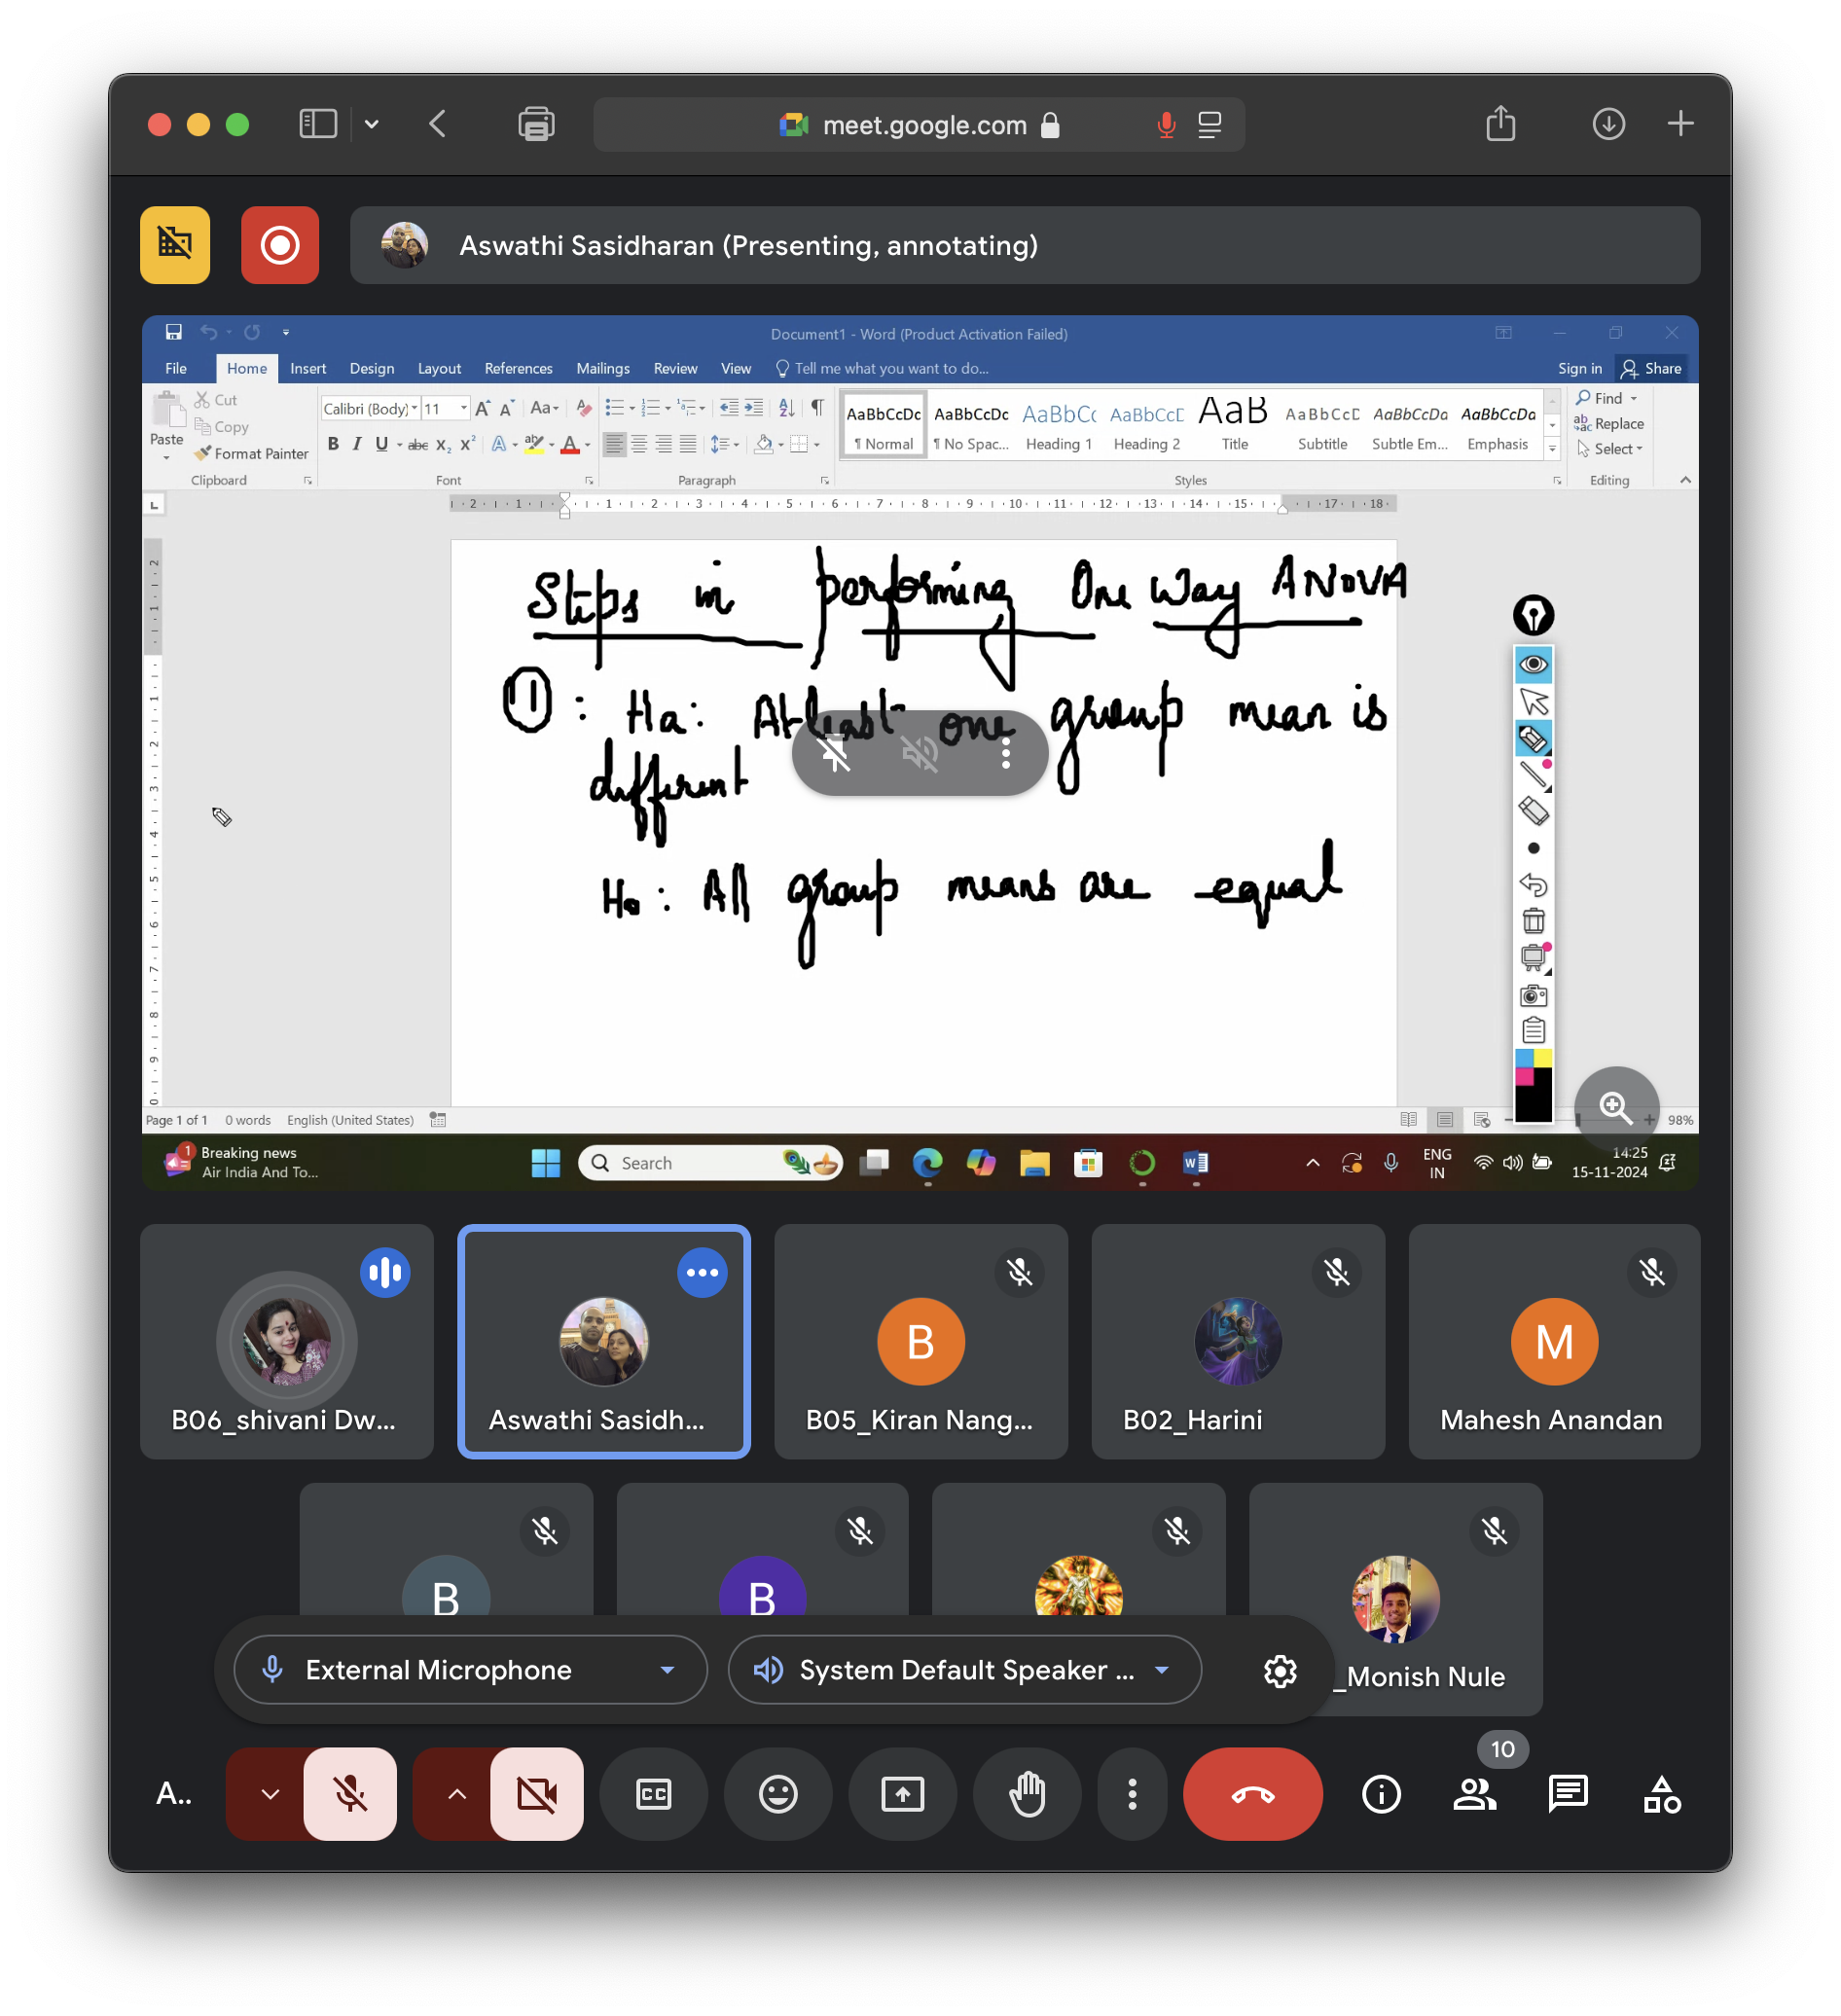 meet.google.com
Aswathi Sasidharan (Presenting, annotating)
Document1 - Word (Product Activation Failed)
File Home Insert Design Layout References Mailings Review View Tell me what you want to do... Sign in Share
Cut
Copy
Paste
Format Painter
Clipboard
Calibri (Body) 11
Font
Paragraph
AaBbCcDc AaBbCcDc AaBbCc AaBbCcE AaB AaBbCcD AaBbCcDa AaBbCcDa
¶ Normal ¶ No Spac... Heading 1 Heading 2 Title Subtitle Subtle Em... Emphasis
Styles
Find
Replace
Select
Editing
2 1 1 2 3 4 5 6 7 8 9 10 11 12 13 14 15 17 18
Steps in performing One Way ANOVA
① : Ha: Atleast one group mean is
different
Ho : All group means are equal
Page 1 of 1 0 words English (United States) 98%
1 Breaking news
Air India And To...
Search
ENG
IN
14:25
15-11-2024
B06_shivani Dw...
Aswathi Sasidh...
B
B05_Kiran Nang...
B02_Harini
M
Mahesh Anandan
B
B
_Monish Nule
External Microphone
System Default Speaker ...
10
A..
CC